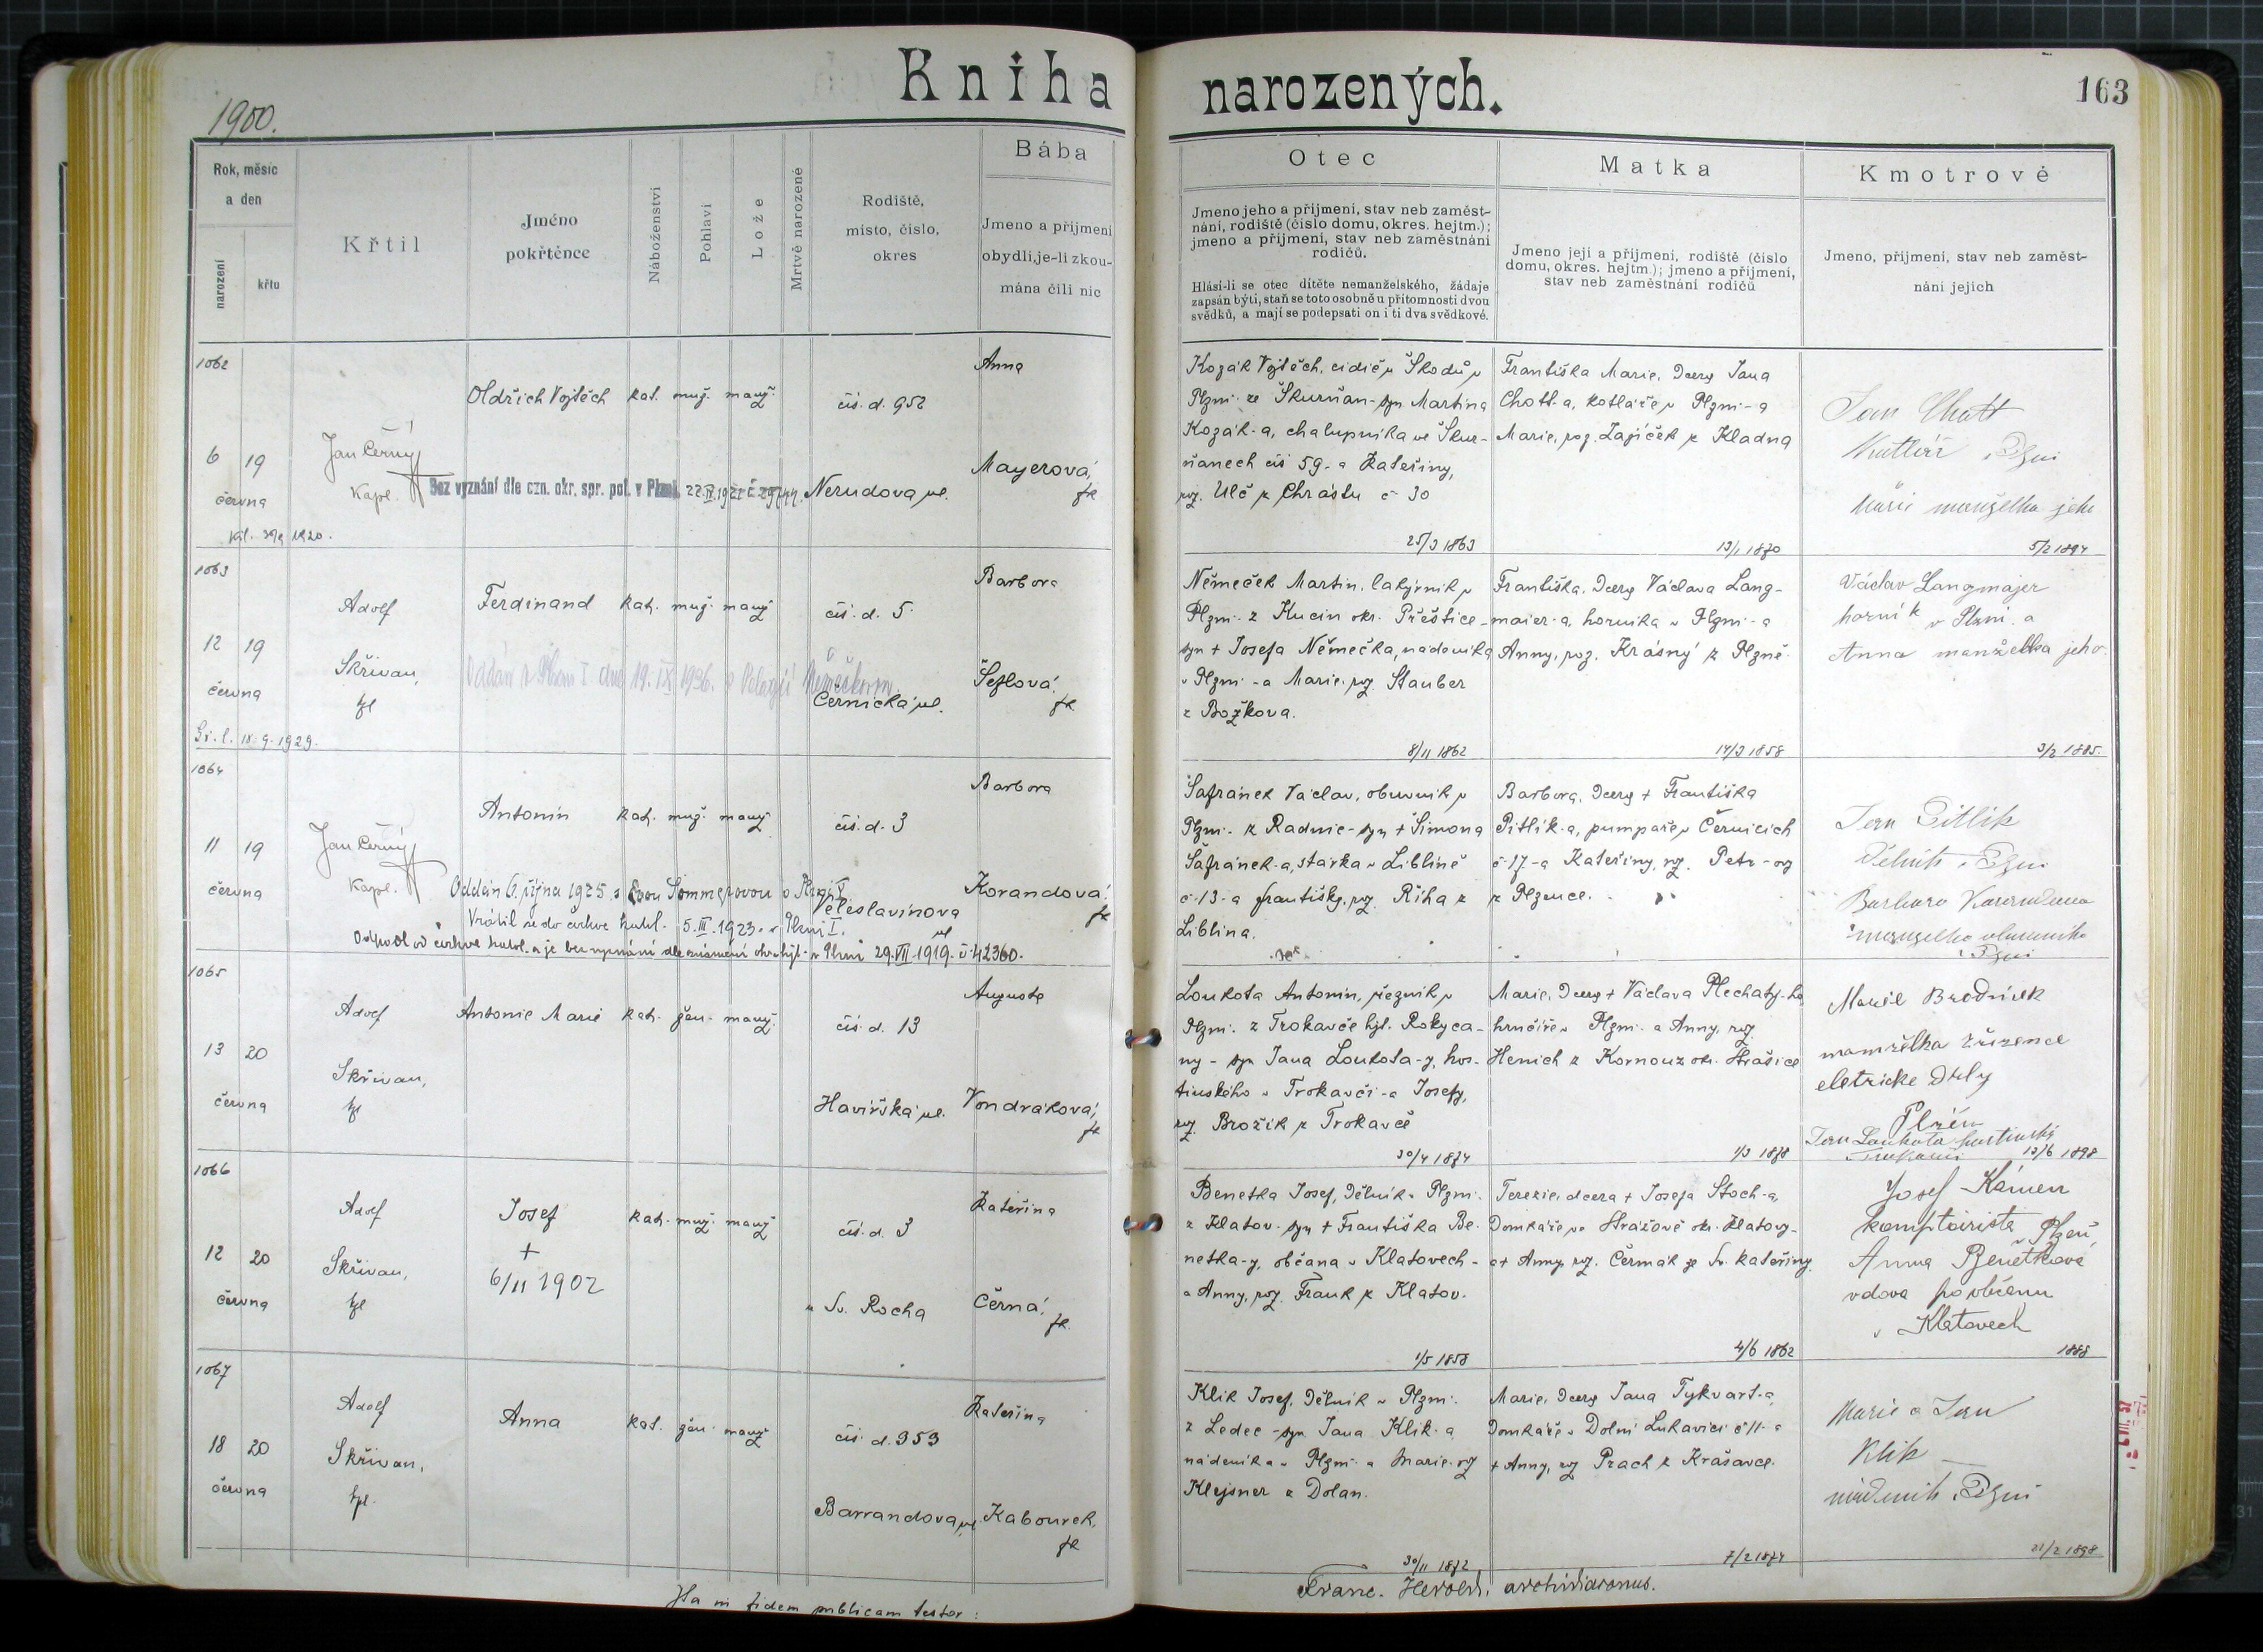 Kniha narozených.
163
1900.
Rok, měsíc
a den
narození
křtu
Křtil
Jméno
pokřtěnce
Náboženství
Pohlaví
Lože
Mrtvě narozené
Rodiště,
místo, číslo,
okres
Bába
Jmeno a přijmení
obydlí, je-li zkou-
mána čili nic
Otec
Jmeno jeho a přijmení, stav neb zaměst-
nání, rodiště (číslo domu, okres. hejtm.);
jmeno a přijmení, stav neb zaměstnání
rodičů.
Hlásí-li se otec dítěte nemanželského, žádaje
zapsán býti, staň se toto osobně u přítomnosti dvou
svědků, a mají se podepsati on i ti dva svědkové.
Matka
Jmeno její a přijmení, rodiště (číslo
domu, okres. hejtm.); jmeno a přijmení,
stav neb zaměstnání rodičů
Kmotrově
Jmeno, přijmení, stav neb zaměst-
nání jejich
1062
6 19
června
Jan Černý
kapl.
Oldřich Vojtěch
kat. muž. manž.
Bez vyznání dle ozn. okr. spr. pol. v Plzni
čís. d. 952
Nerudova ul.
Anna
Mayerová,
zk
Kozák Vojtěch, cidič u Škodů v
Plzni ze Škurňan - syn Martina
Kozák-a, chalupníka ve Škur-
ňanech čís 59 - a Kateřiny,
roz. Ulč z Chrástu č 30
25/3 1863
Františka Marie, dcera Jana
Chott-a, kotláře v Plzni - a
Marie, roz. Zajíček z Kladna
13/1 1870
Jan Chott
v Plzni
Marie manželka jeho
5/2 1894
1063
12 19
června
18. 9. 1929.
Adolf
Skřivan,
kpl
Ferdinand
kat. muž. manž
Oddán v Plzni I. dne 19. IX 1936. s Pelagií Němečkovou
čís. d. 5.
Černická ul.
Barbora
Šetlová,
zk
Němeček Martin, lakýrník v
Plzni z Kucin okr. Přeštice -
syn + Josefa Němečka, nádeníka
v Plzni - a Marie roz. Stauber
z Božkova.
8/11 1862
Františka, dcera Václava Lang-
maier-a, horníka v Plzni - a
Anny, roz. Krásný z Plzně.
14/3 1858
Václav Langmajer
horník v Plzni a
Anna manželka jeho
3/2 1885.
1064
11 19
června
Jan Černý
kapl.
Antonín
kat. muž. manž.
Oddán 6. října 1925 s Sommerovou v Plzni
Vrátil se do církve katol. 5. III. 1923. v Plzni I.
29. VII. 1919. č. 42360.
čís. d. 3
Veleslavínova
ul
Barbora
Korandová,
zk
Šafránek Václav, obuvník v
Plzni z Radnic - syn + Šimona
Šafránek-a, stárka v Liblíně
č. 13 - a Františky, roz. Říha z
Liblína.
Barbora, dcera + Františka
Pitlík-a, pumpaře v Černicích
č 17 - a Kateřiny, roz. Petr-
z Plzence.
Jan Pitlik
dělník v Plzni
Barbora
manželka obuvníka
v Plzni
1065
13 20
června
Adolf
Skřivan,
kpl
Antonie Marie
kat. žen. manž.
čís. d. 13
Havířská ul.
Augusta
Vondráková,
zk
Loukota Antonín, řezník v
Plzni z Trokavče hjt. Rokyca-
ny - syn Jana Loukota-y, hos-
tinského v Trokavči - a Josefy,
roz. Brožík z Trokavče
30/4 1874
Marie, dcera + Václava Plechatý-ho
hrnčíře v Plzni a Anny, roz.
Henich z Kornouz okr. Strašice
1/3 1878
Marie Brodnick
manželka zřízence
eletricke dráhy
Plzén
Jan Loukota hostinský
13/6 1898
1066
12 20
června
Adolf
Skřivan,
kpl
Josef
+
6/11 1902
kat. muž. manž
čís. d. 3
u Sv. Rocha
Kateřina
Černá,
zk.
Benetka Josef, dělník v Plzni
z Klatov - syn + Františka Be-
netka-y, občana v Klatovech -
a Anny, roz. Frank z Klatov.
1/5 1858
Terezie, dcera + Josefa Stoch-a,
domkáře ve Strážově okr. Klatovy -
a + Anny, roz. Čermák ze Sv. Kateřiny
4/6 1862
Josef Kámen
komptoirista v Plzni
Anna Benetková
vdova po občanu
v Klatovech
1888
1067
18 20
června
Adolf
Skřivan,
kpl.
Anna
kat. žen. manž
čís. d. 353
Barrandova ul.
Kateřina
Kabourek,
zk
Klik Josef, dělník v Plzni
z Ledec - syn Jana Klik-a
nádeníka v Plzni a Marie, roz
Klejsner z Dolan.
30/11 1872
Marie, dcera Jana Tykvart-a,
domkáře v Dolní Lukavici č 11 - a
+ Anny, roz Prach z Krašovce.
7/2 1874
Marie a Jan
Klik
nádeník v Plzni
21/2 1898
Ita in fidem publicam testor:
Franc. Herold, archidiaconus.